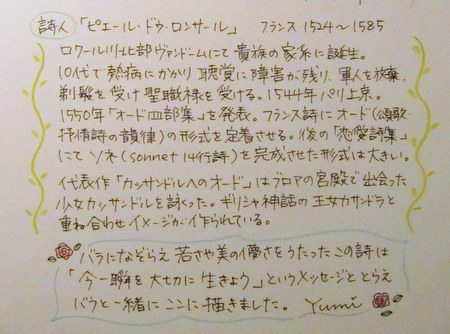 詩人 「ピエール・ドゥ・ロンサール」 フランス 1524~1585
ロワール川北部ヴァンドームにて 貴族の家系に誕生。
10代で熱病にかかり 聴覚に障害が残り、軍人を放棄
剃髪を受け 聖職禄を受ける。1544年パリ上京。
1550年「オード四部集」を発表。フランス詩にオード(頌歌・
抒情詩の韻律)の形式を定着させる。後の「恋愛詩集」
にて ソネ(sonnet 14行詩)を完成させた形式は大きい。
代表作「カッサンドルへのオード」はブロアの宮殿で出会った
少女カッサンドルを詠った。ギリシャ神話の王女カサンドラと
重ね合わせ イメージが作られている。
バラになどらえ 若さや美の儚さをうたったこの詩は
「今一瞬を大切に生きよう」というメッセージととらえ
バラと一緒にここに描きました。 Yumi